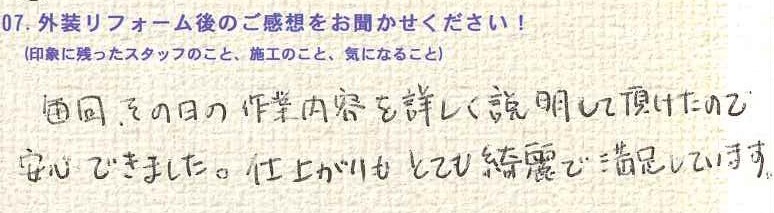 07. 外装リフォーム後のご感想をお聞かせください！
(印象に残ったスタッフのこと、施工のこと、気になること)
毎回、その日の作業内容を詳しく説明して頂けたので
安心できました。仕上がりもとても綺麗で満足しています。